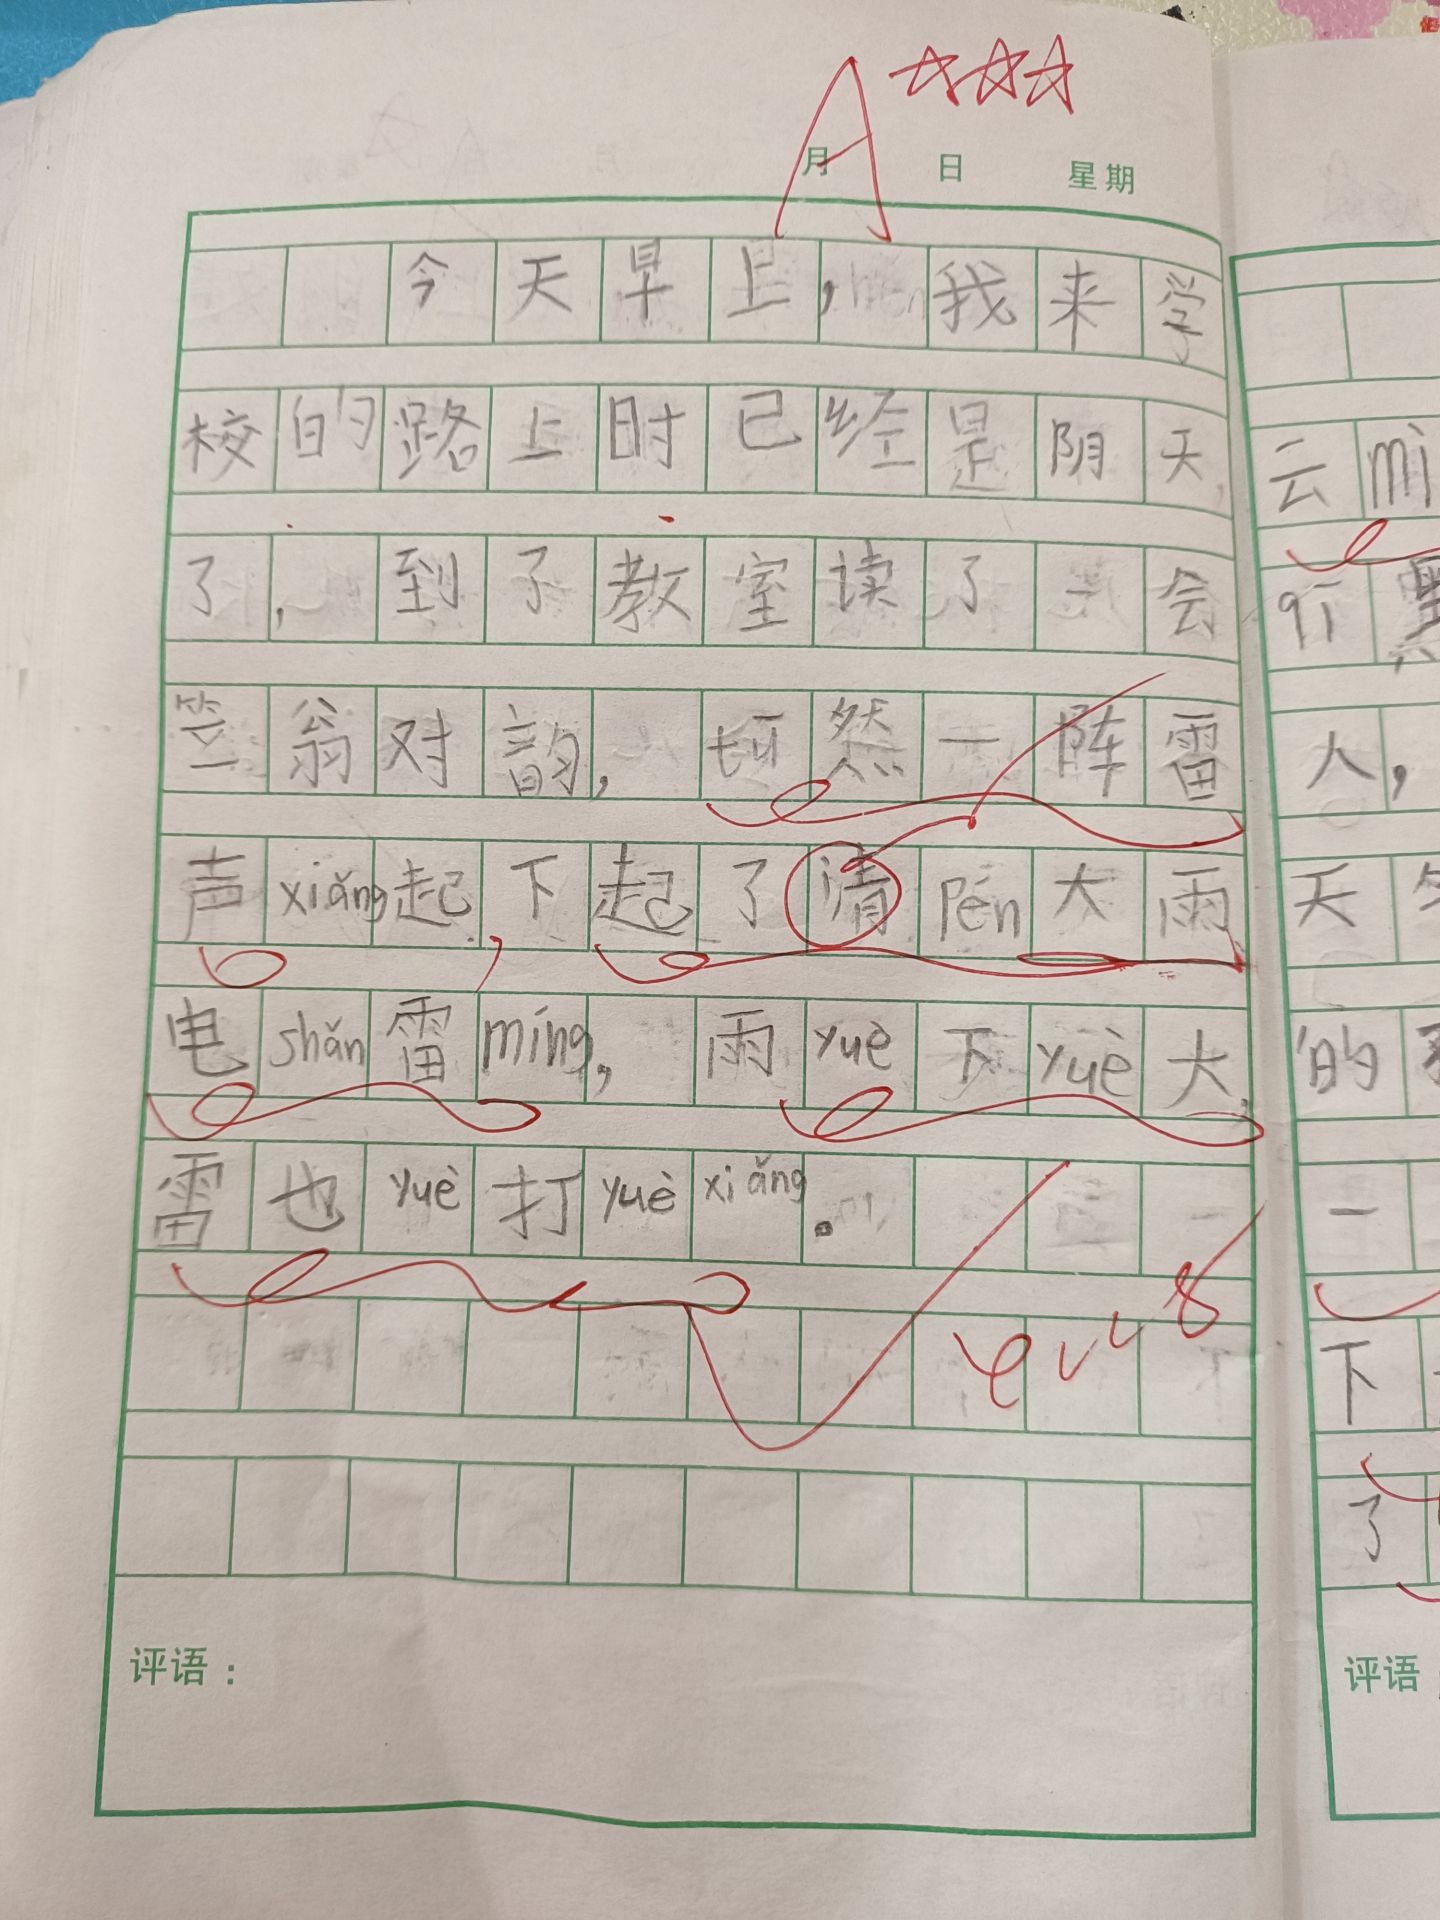 A
月 日 星期
今天早上，我来学
校的路上时已经是阴天，
了，到了教室读了一会
笠翁对韵，tū然一阵雷
声xiǎng起下起了清pén大雨，
电shǎn雷míng，雨yuè下yuè大，
雷也yuè打yuè xiǎng。
评语：
云mì
qī
人，
天
的
一
下
了
评语